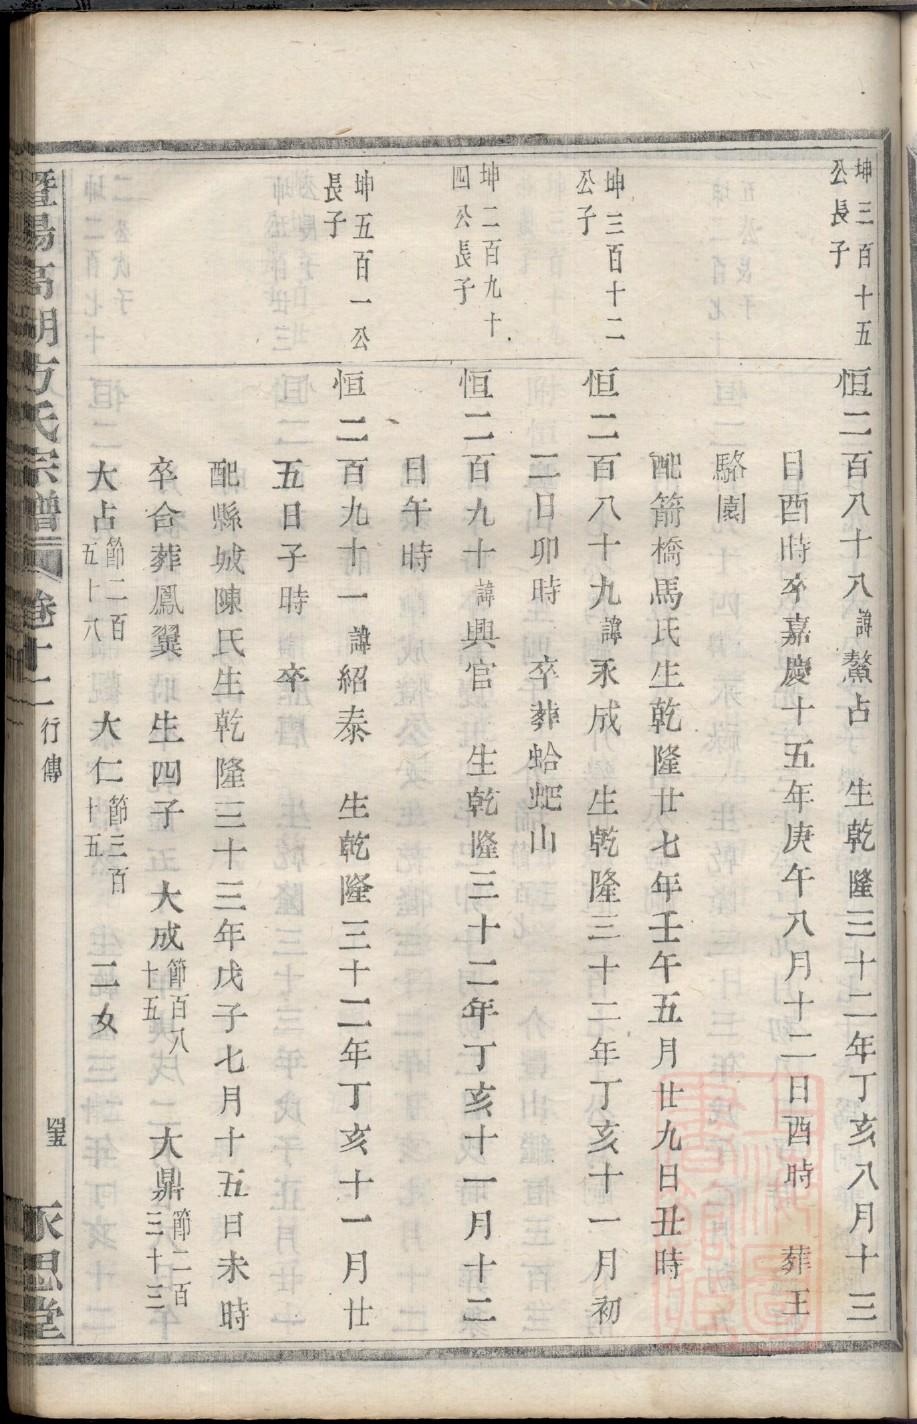 坤三百十五
公長子
恒二百八十八諱鰲占 生乾隆三十二年丁亥八月十三
日酉時卒嘉慶十五年庚午八月十二日酉時 葬王
駱園
配箭橋馬氏生乾隆廿七年壬午五月廿九日丑時
坤三百十二
公子
恒二百八十九諱永成 生乾隆三十二年丁亥十一月初
二日卯時 卒葬蛤蚆山
坤二百九十
四公長子
恒二百九十諱興官 生乾隆三十二年丁亥十一月十二
日午時
坤五百一公
長子
恒二百九十一諱紹泰 生乾隆三十二年丁亥十一月廿
五日子時 卒
配縣城陳氏生乾隆三十三年戊子七月十五日未時
卒合葬鳳翼 生四子 大成節百八十五 大鼎節二百三十三
大占節二百五十八 大仁節三百十五 二女
暨陽高湖方氏宗譜 卷十二 行傳 永思堂